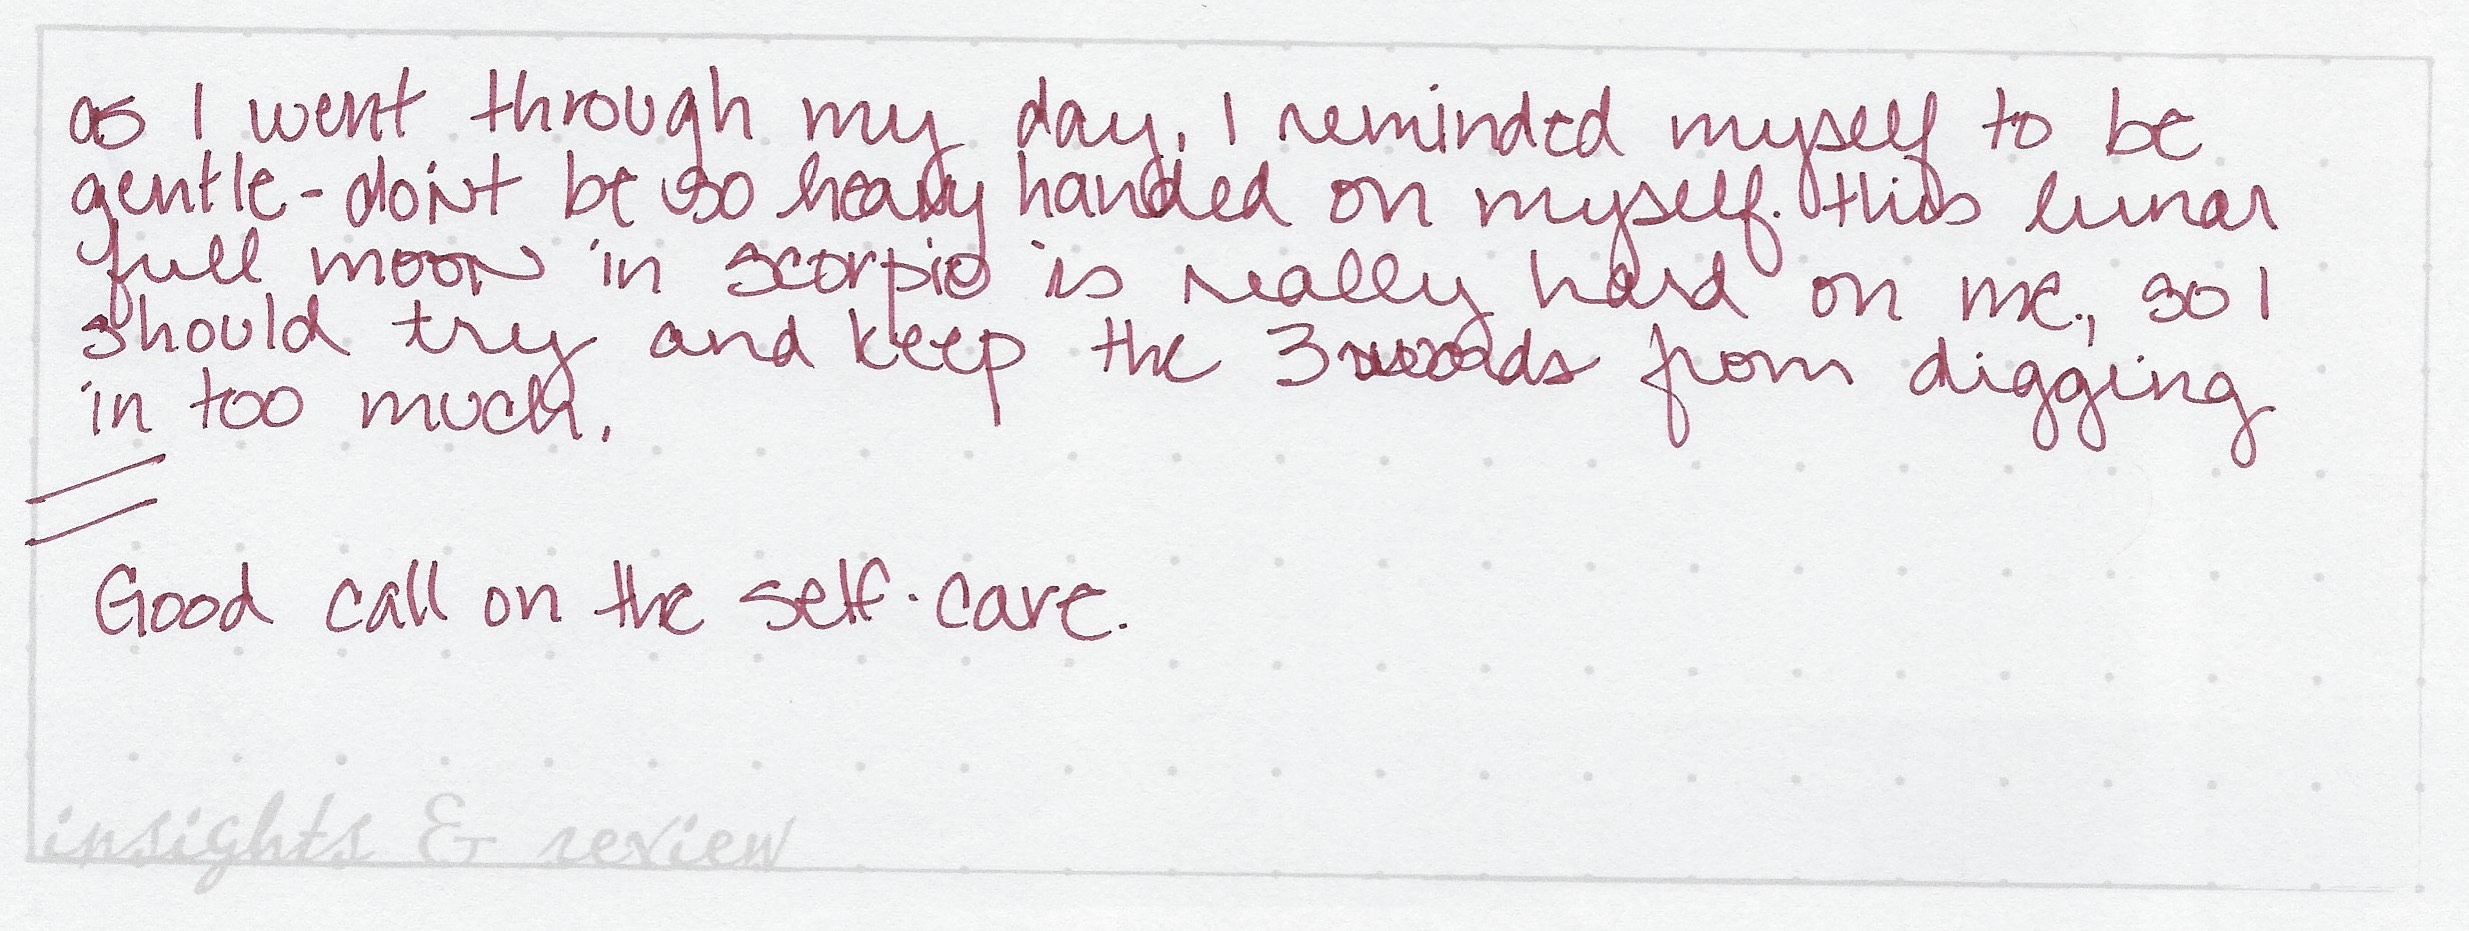 as I went through my day, I reminded myself to be
gentle - don't be so heavy handed on myself. this lunar
full moon in scorpio is really hard on me., so I
should try and keep the 3 swords from digging
in too much.
Good call on the self-care.
insights & review